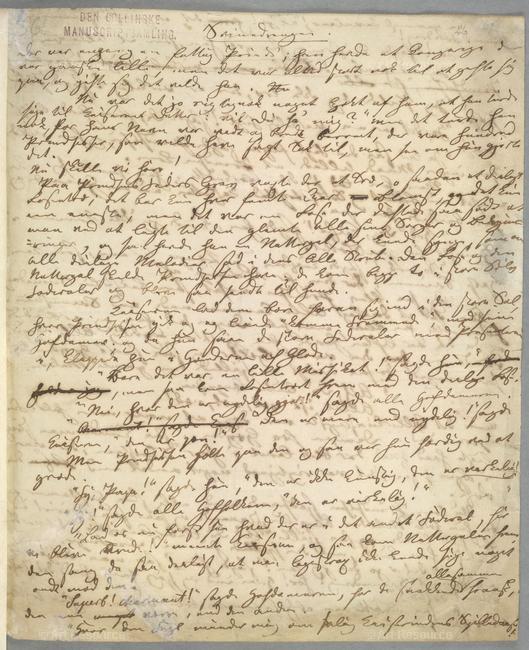 DEN COLLINSKE
MANUSCRIPTSAMLING.
Svinedrengen
Der var engang en fattig Prinds; han havde et Kongerige der
var ganske lille, men det var altid stort nok til at gifte sig
paa, og gifte sig det vilde han.
Nu var det jo rigtignok noget kjækt af ham, at han turde
sige til Keiserens Datter: "vil du ha' mig?" men det turde han
nok for hans Navn var vidt og bredt berømt, der var hundrede
Prindsesser, som vilde have sagt Tak til, men see om hun gjorde
det.
Nu skulle vi høre!
Paa Prindsens Faders Grav voxte der et Træ, o saadan et deiligt
Rosentræ, det bar kun hver femte Aar Blomst og det kun
een eneste, men det var en Rose der duftede saa sødt at
man ved at lugte til den glemte alle sine Sorger og Bekym-
ringer, og saa havde han en Nattergal, der kunde synge, som om
alle deilige Melodier sad i dens lille Strube. Den Rose og den
Nattergal skulde Prindsessen have; de kom begge to i store Sølv
Foderaler og bleve saa sendt til hende.
Keiseren lod dem bære foran sig ind i den store Sal
hvor Prindsessen gik og legede "komme Fremmede" med sine
Hofdamer, og da hun saae de store Foderaler med Presenterne
i, klappede hun i Hænderne af Glæde.
"Bare det var en lille Missekat!" sagde hun,
men saa kom Rosentræet frem med den deilige Rose.
"Nei, hvor den er nydelig gjort!" sagde alle Hofdamerne.
"Den er mere end nydelig!" sagde
Keiseren, "den er pæn!"
Men Prindsessen følte paa den og saa var hun færdig ved at
græde.
"Fy Papa!" sagde hun, "den er ikke kunstig, den er virkelig!"
"Fy!" sagde alle Hoffolkene, "den er virkelig!"
"Lad os nu først see hvad der er i det andet Foderal, før
vi blive vrede!" meente Keiseren, og saa kom Nattergalen frem;
den sang da saa deiligt, at man ligestrax ikke kunde sige noget
ondt mod den.
"Superb! charmant!" sagde Hofdamerne, for de snakkede allesammen fransk,
den ene værre, end den anden.
"Hvor den Fugl minder mig om salig Keiserindens Spilledaase,